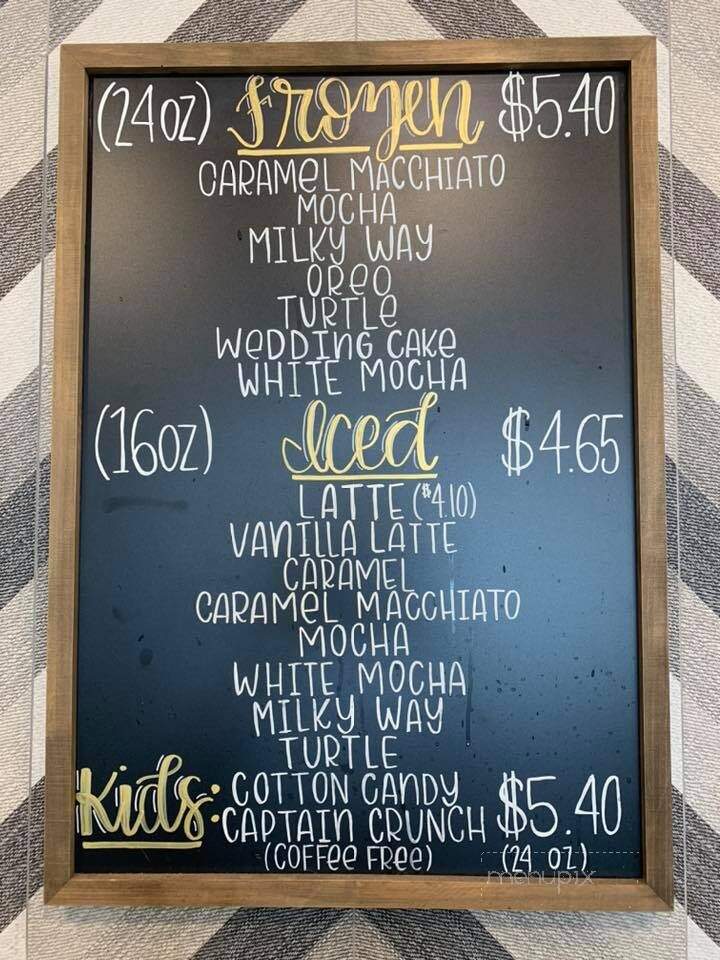 (24oz) Frozen $5.40
CARAMEL MACCHIATO
MOCHA
MILKY WAY
OREO
TURTLE
WEDDING CAKE
WHITE MOCHA
(16oz) Iced $4.65
LATTE ($4.10)
VANILLA LATTE
CARAMEL
CARAMEL MACCHIATO
MOCHA
WHITE MOCHA
MILKY WAY
TURTLE
Kids: COTTON CANDY $5.40
CAPTAIN CRUNCH
(COFFEE FREE) (24 oz)
menupix